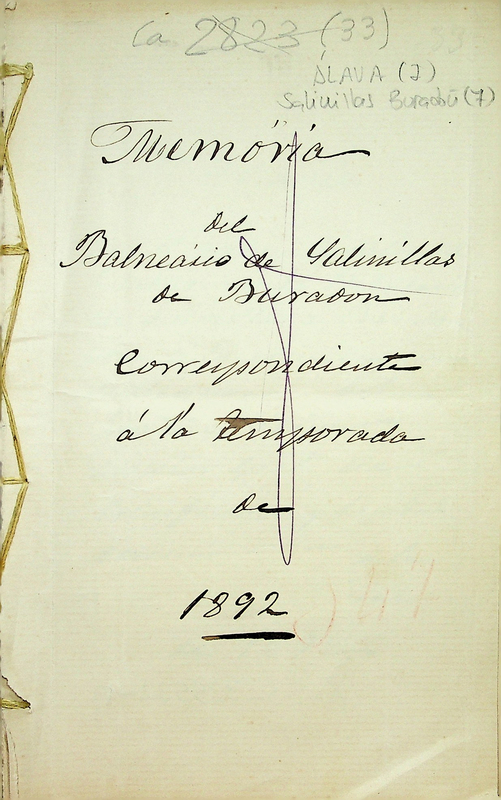 Ca 2823 (33)
ÁLAVA (J)
Salinillas Buradón (7)
Memória
del
Balneário de Salinillas
de Buradon
Correspondiente
á la temporada
de
1892